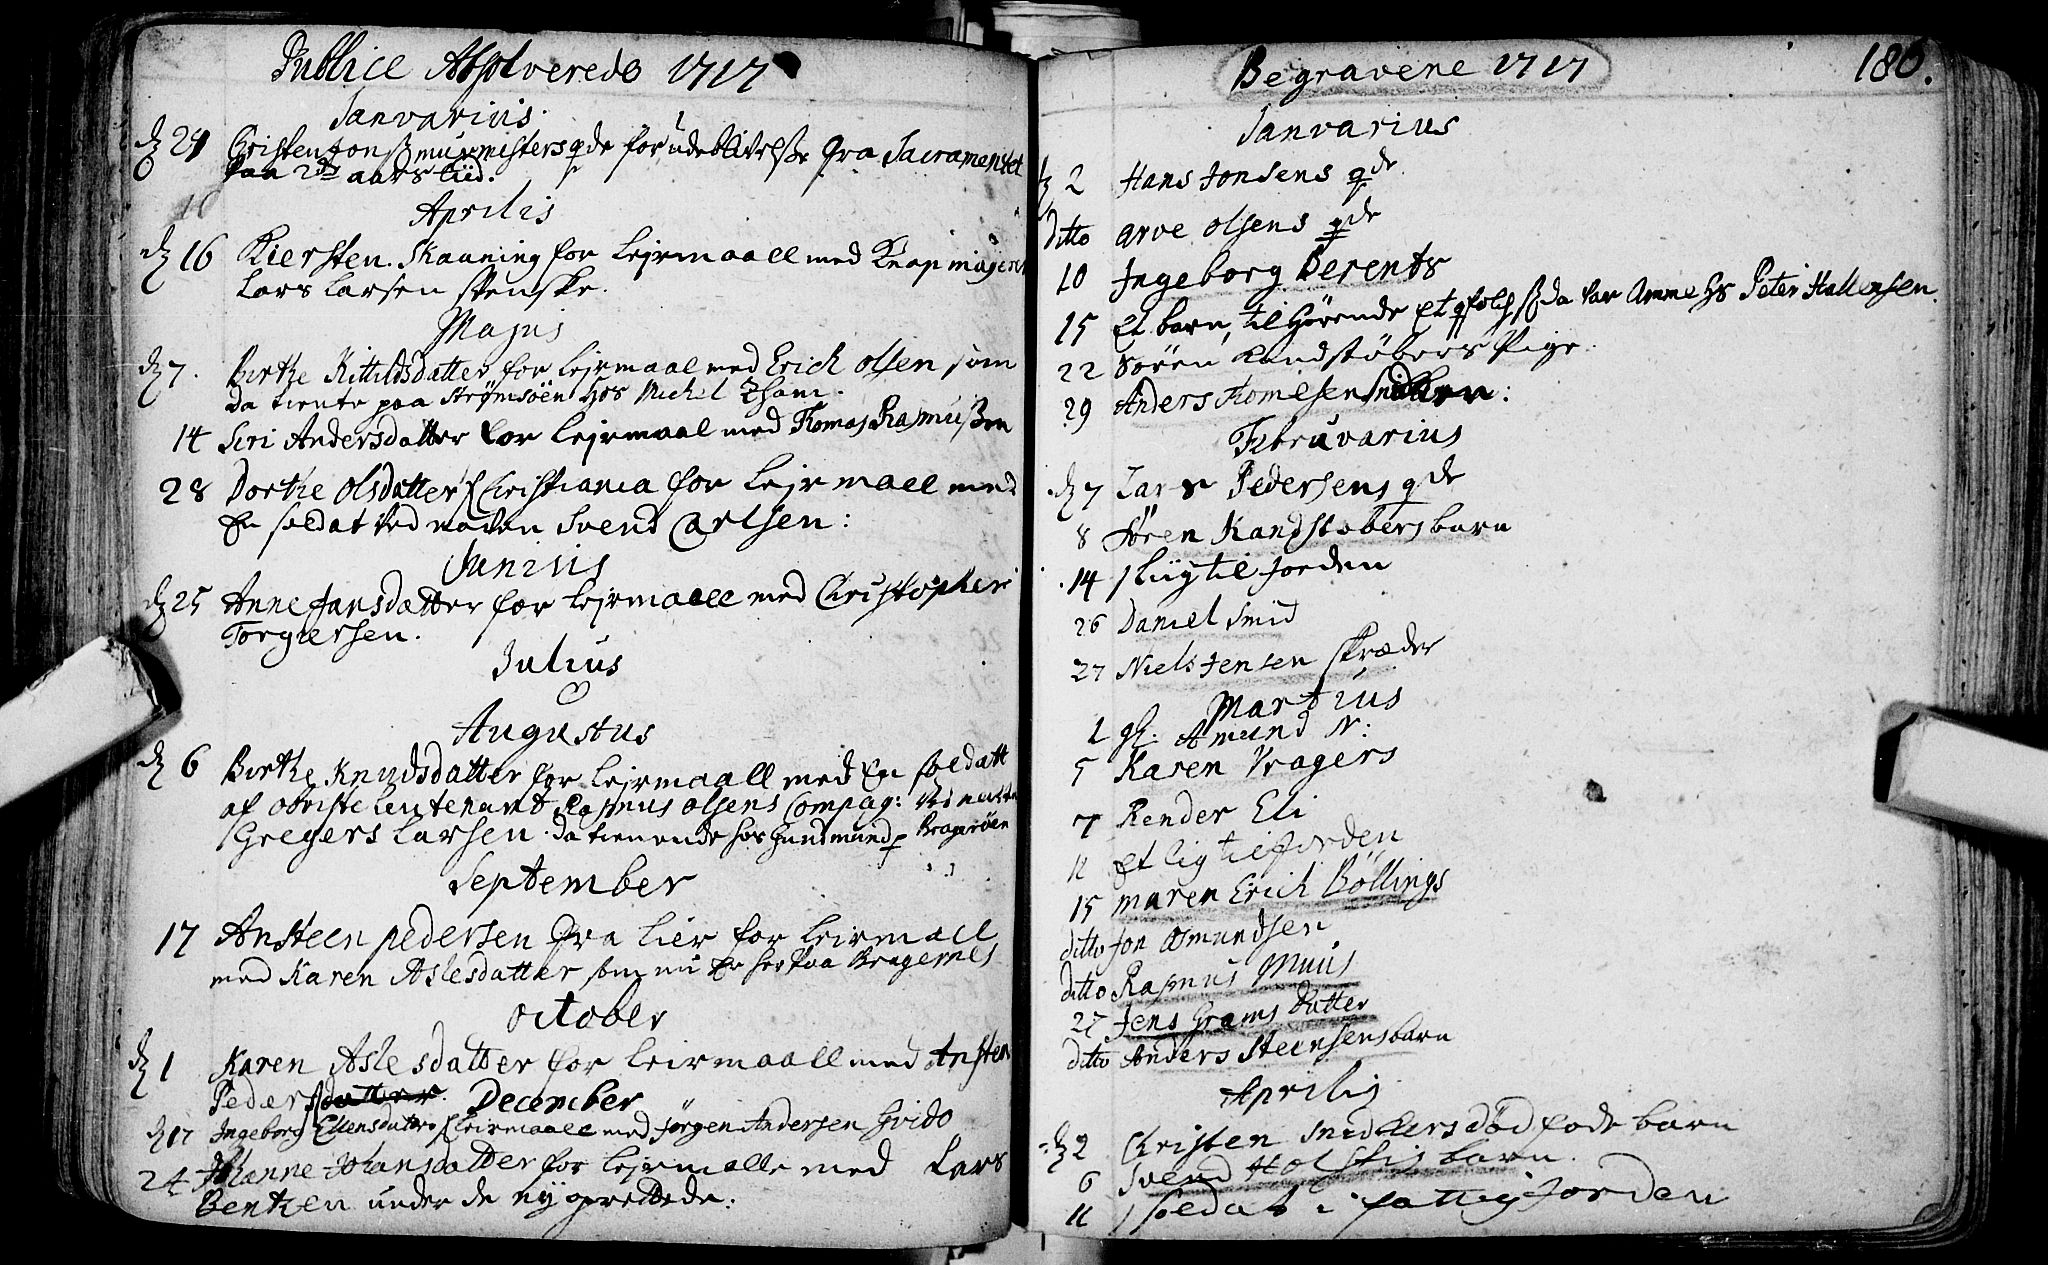 Publice Absolverede 1717
Janvarius.
dz 24 Christen Jonß murmesters qde for udeblivelße fra Sacramentet
paa 2de aars tiid.
Aprilis
dz 16 Kiersten Skanning for Lejrmaall med
Lars Larsen Svenske.
Majus
dz 7. Birthe Kittilsdatter for Lejrmaal med Erich Olsen som
da tiente paa Strømsöen hos Michel Tham.
14 Siri Andersdatter for Lejrmaal med Thomas Rasmußen
28 Dorthe Olsdatter Christiania for Lejrmaall med
En soldat ved navn Svend Carlsen:
Junius
dz 25 Anne Jansdatter for Lejrmaall med Christopher
Torgiersen.
Julius
Augustus
dz 6 Birthe Knudsdatter for Lejrmaall med En soldatt
af Obriste Leutenant Rasmus Olsens Compag: ved nafn
Gregers Larsen da tienende hos Gudmund Bragerøen
September
17 Ansteen pedersen fra Lier for Leirmaall
med Karen Aslesdatter, som nu Er her paa Bragernes
October
dz 1 Karen Aslesdatter for Leirmaall med Ansten
Peders datter. December
dz 17 Ingeborg Ellensdatter Leirmaall med Jørgen Andersen
24 Johanne Johansdatter for Lejrmalle med Lars
Bentzen under de ny oprettede:
Begravene 1717 180.
Janvarius
dz 2 Hans Jonsens qde
ditto Arve Olsens qde
10 Ingeborg Berents
15 Et barn, tilhørende Et qfolch da var Amme hs Peter Hallensen.
22 Sören Kandstöbers Pige.
29 Anders Thomesen
Februvarius
dz 7 Lars Pedersens qde
8 Sören Kandstobers barn
14 1 Liig til Jorden
26 Daniel Smid
27 Niels Jensen skræder
Martius
1 gl. Amund N:
5 Karen Vragers
7 Render Eli
11 Et lig til Jorden
15 maren Erich Böllings
ditto Jon Asmundsen
ditto Rasmus Muus
27 Jens Grams Datter
ditto Anders Steensens barn
Aprilis
dz 2 Christen Snidkers død fode barn
6 Svend Holstis barn.
11 1 soldat i fattig Jorden